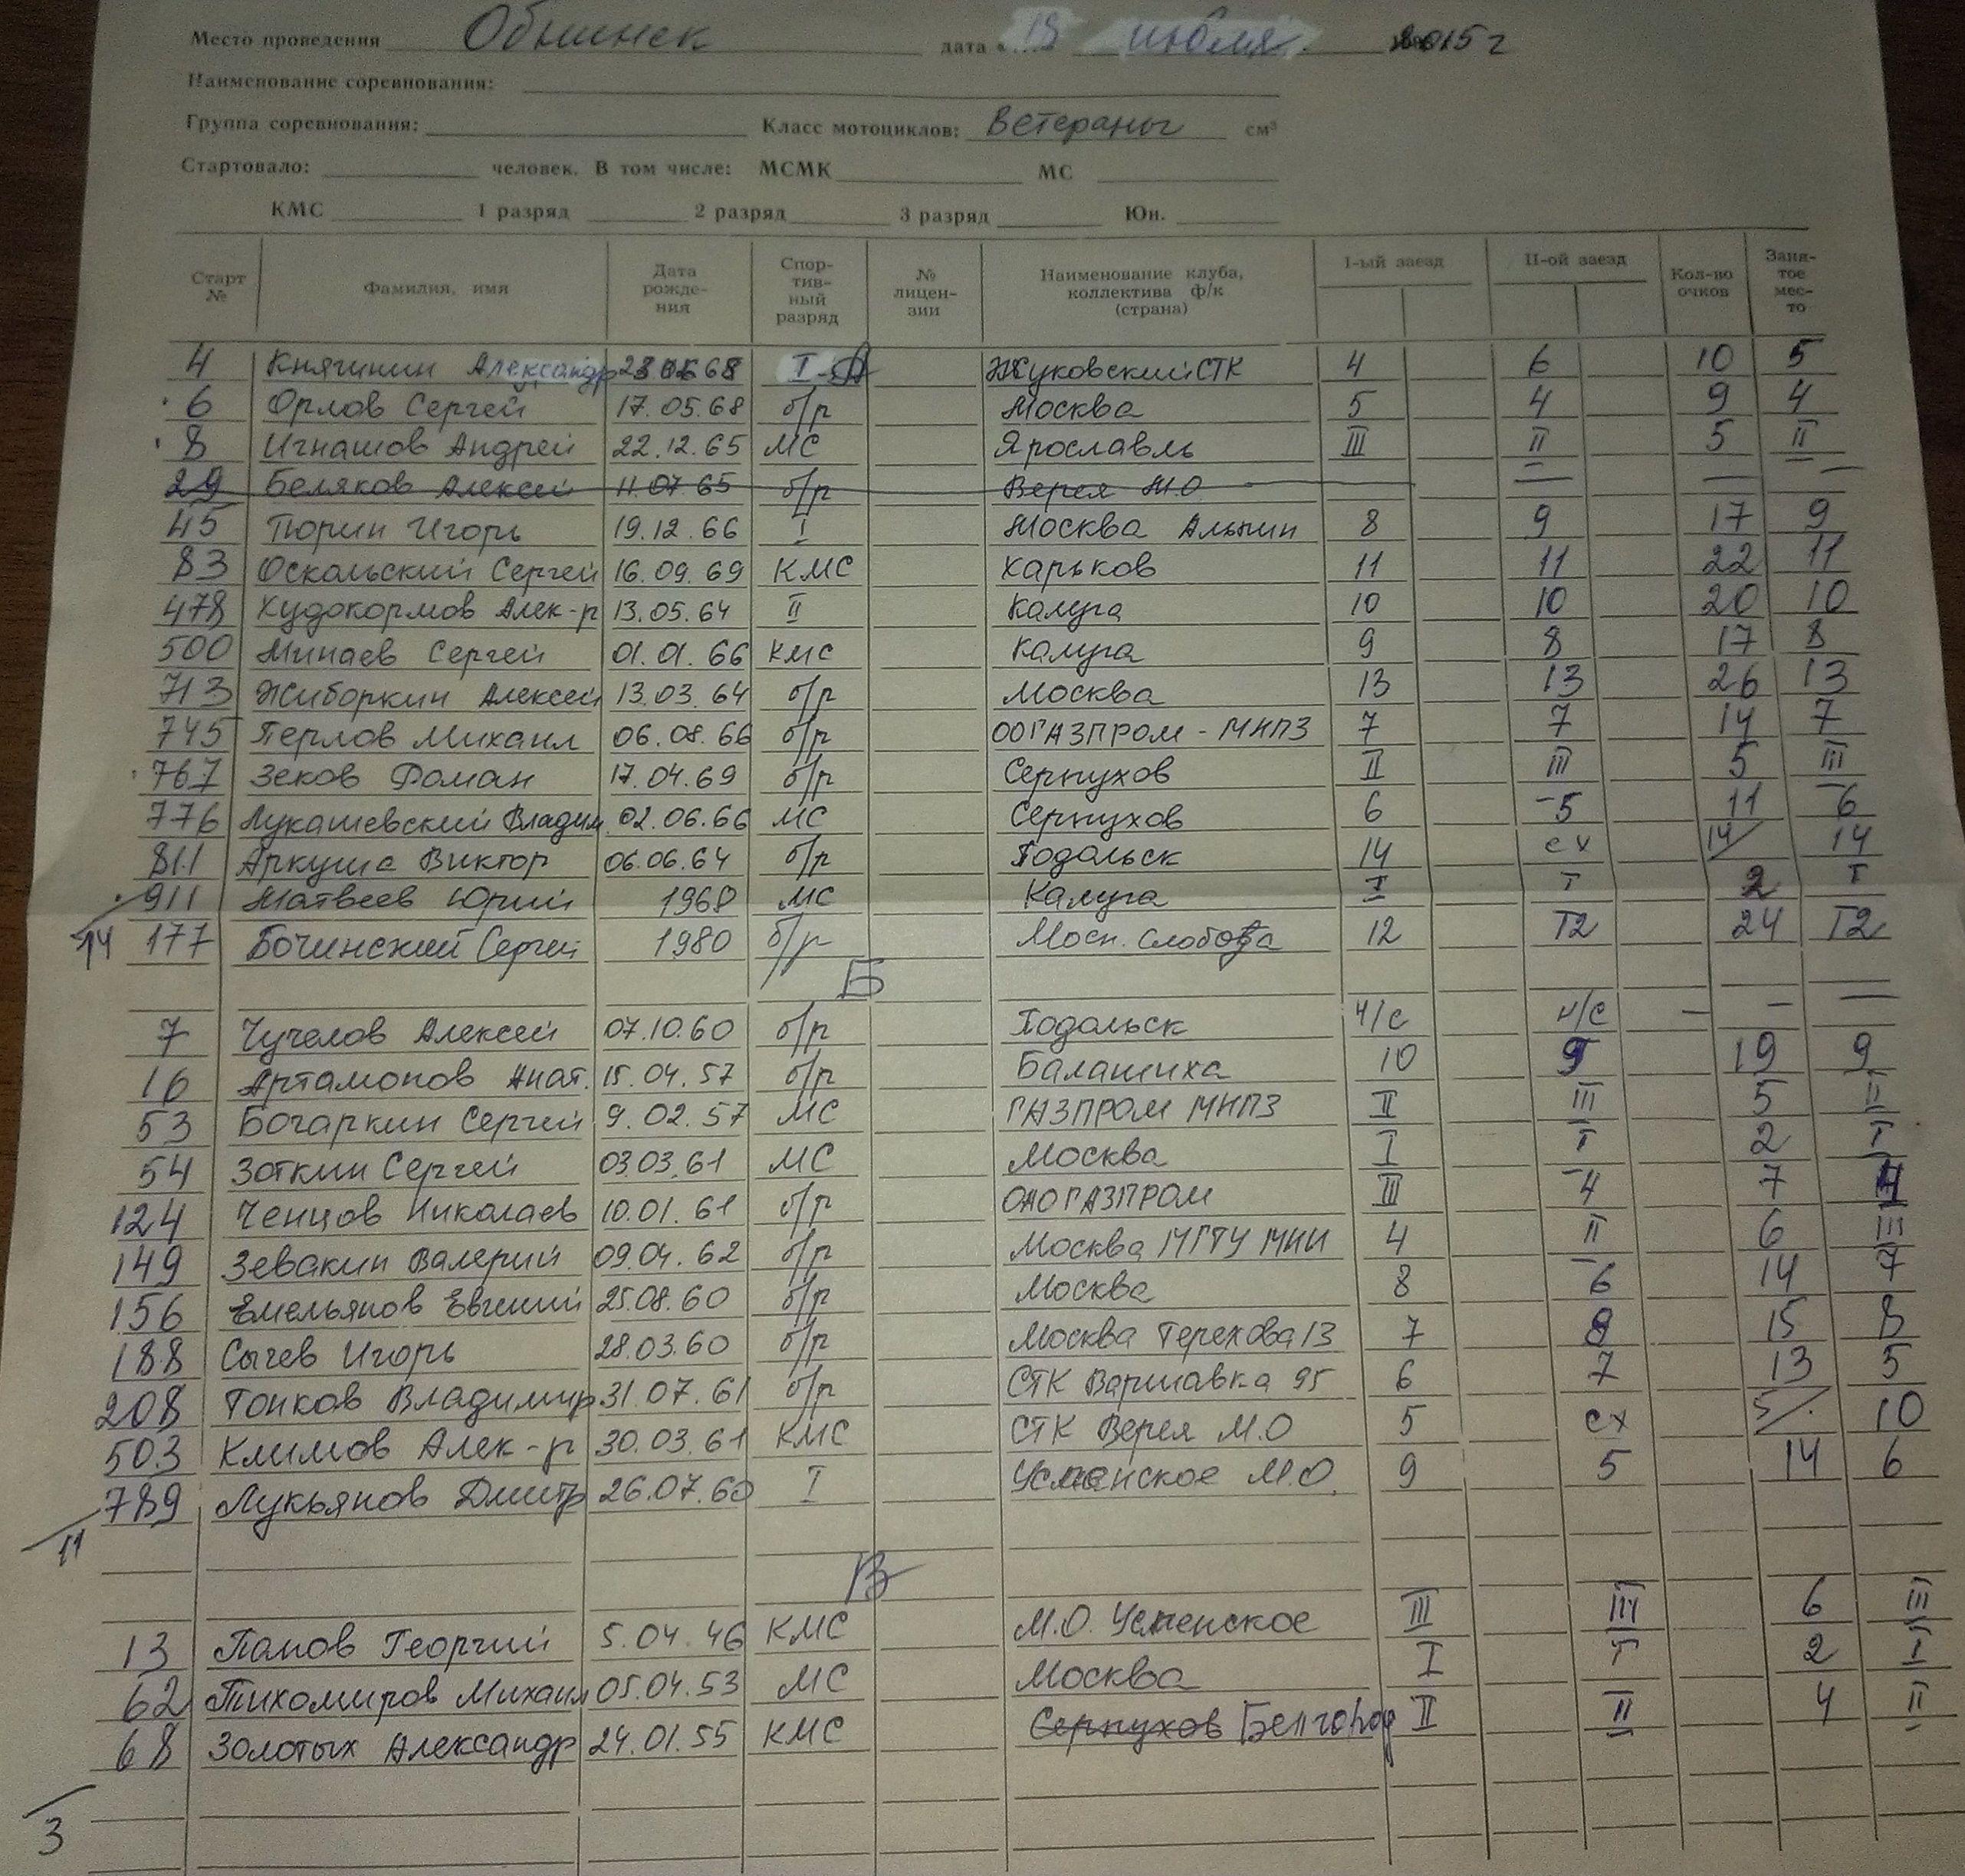 Место проведения Обнинск дата « 19 июля 2015 г
Наименование соревнования:
Группа соревнования: Класс мотоциклов: Ветераны см³
Стартовало: человек. В том числе: МСМК МС
КМС 1 разряд 2 разряд 3 разряд Юн.
Старт № Фамилия, имя Дата рожде- ния Спор- тив- ный разряд № лицен- зии Наименование клуба, коллектива ф/к (страна) I-ый заезд II-ой заезд Кол-во очков Заня- тое мес- то
4 Княгинин Александр 68 I А Жуковский СТК 4 6 10 5
6 Орлов Сергей 17.05.68 б/р Москва 5 4 9 4
8 Игнашов Андрей 22.12.65 МС Ярославль III II 5 II
29 Беляков Алексей 11.07.65 б/р Верея М.О — — —
45 Тюрин Игорь 19.12.66 I Москва Альпин 8 9 17 9
83 Оскольский Сергей 16.09.69 КМС Харьков 11 11 22 11
478 Худокормов Алек-р 13.05.64 II Калуга 10 10 20 10
500 Минаев Сергей 01.01.66 КМС Калуга 9 8 17 8
713 Жиборкин Алексей 13.03.64 б/р Москва 13 13 26 13
745 Перлов Михаил 06.08.66 б/р ООГАЗПРОМ - МНПЗ 7 7 14 7
767 Зеков Роман 17.04.69 б/р Серпухов II III 5 III
776 Лукашевский Владим 02.06.66 МС Серпухов 6 5 11 6
811 Аркуша Виктор 06.06.64 б/р Подольск 14 сх 14/ 14
911 Матвеев Юрий 1968 МС Калуга I I 2 I
14 177 Бочинский Сергей 1980 б/р Мосн. Слобода 12 12 24 12
Б
7 Чучелов Алексей 07.10.60 б/р Подольск н/с н/с — — —
16 Артамонов Анат. 15.04.57 б/р Балашиха 10 9 19 9
53 Богаркин Сергей 9.02.57 МС ГАЗПРОМ МНПЗ II III 5 II
54 Зоткин Сергей 03.03.61 МС Москва I I 2 I
124 Ченцов Николаев 10.01.61 б/р ОАО ГАЗПРОМ III 4 7 4
149 Зевакин Валерий 09.04.62 б/р Москва МГТУ МИИ 4 II 6 III
156 Емельянов Евгений 25.08.60 б/р Москва 8 6 14 7
188 Сычев Игорь 28.03.60 б/р Москва Терехова 13 7 8 15 8
208 Тонков Владимир 31.07.61 б/р СТК Варшавка 95 6 7 13 5
503 Климов Алек-р 30.03.61 КМС СТК Верея М.О 5 сх 5/. 10
789 Лукьянов Дмитр 26.07.60 I Успенское М.О. 9 5 14 6
11
В
13 Панов Георгий 5.04.46 КМС М.О. Успенское III III 6 III
62 Тихомиров Михаил 05.04.53 МС Москва I I 2 I
68 Золотых Александр 24.01.55 КМС Серпухов Белгород II II 4 II
3